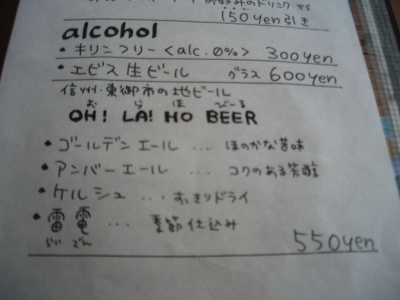 お好みのドリンク から
150yen引き
alcohol
・キリンフリー<alc.0%> 300yen
・エビス生ビール グラス 600yen
信州・東御市の地ビール
お ら ほ びーる
OH! LA! HO BEER
・ゴールデンエール … ほのかな苦味
・アンバーエール … コクのある芳醇
・ケルシュ … すっきりドライ
・雷電 … 季節仕込み
らい でん
550yen